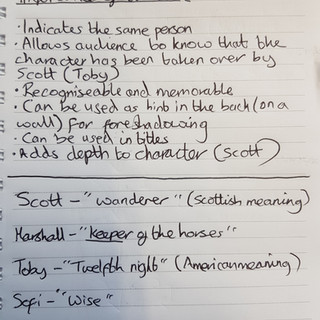 · Indicates the same person
· Allows audience to know that the
character has been taken over by
Scott (Toby)
· Recogniseable and memorable
· Can be used as hint in the back (on a
wall) for foreshadowing
· Can be used in titles
· Adds depth to character (Scott)
Scott - "wanderer" (Scottish meaning)
Marshall - "keeper of the horses"
Toby - "Twelfth night" (American meaning)
Sofi - "Wise"